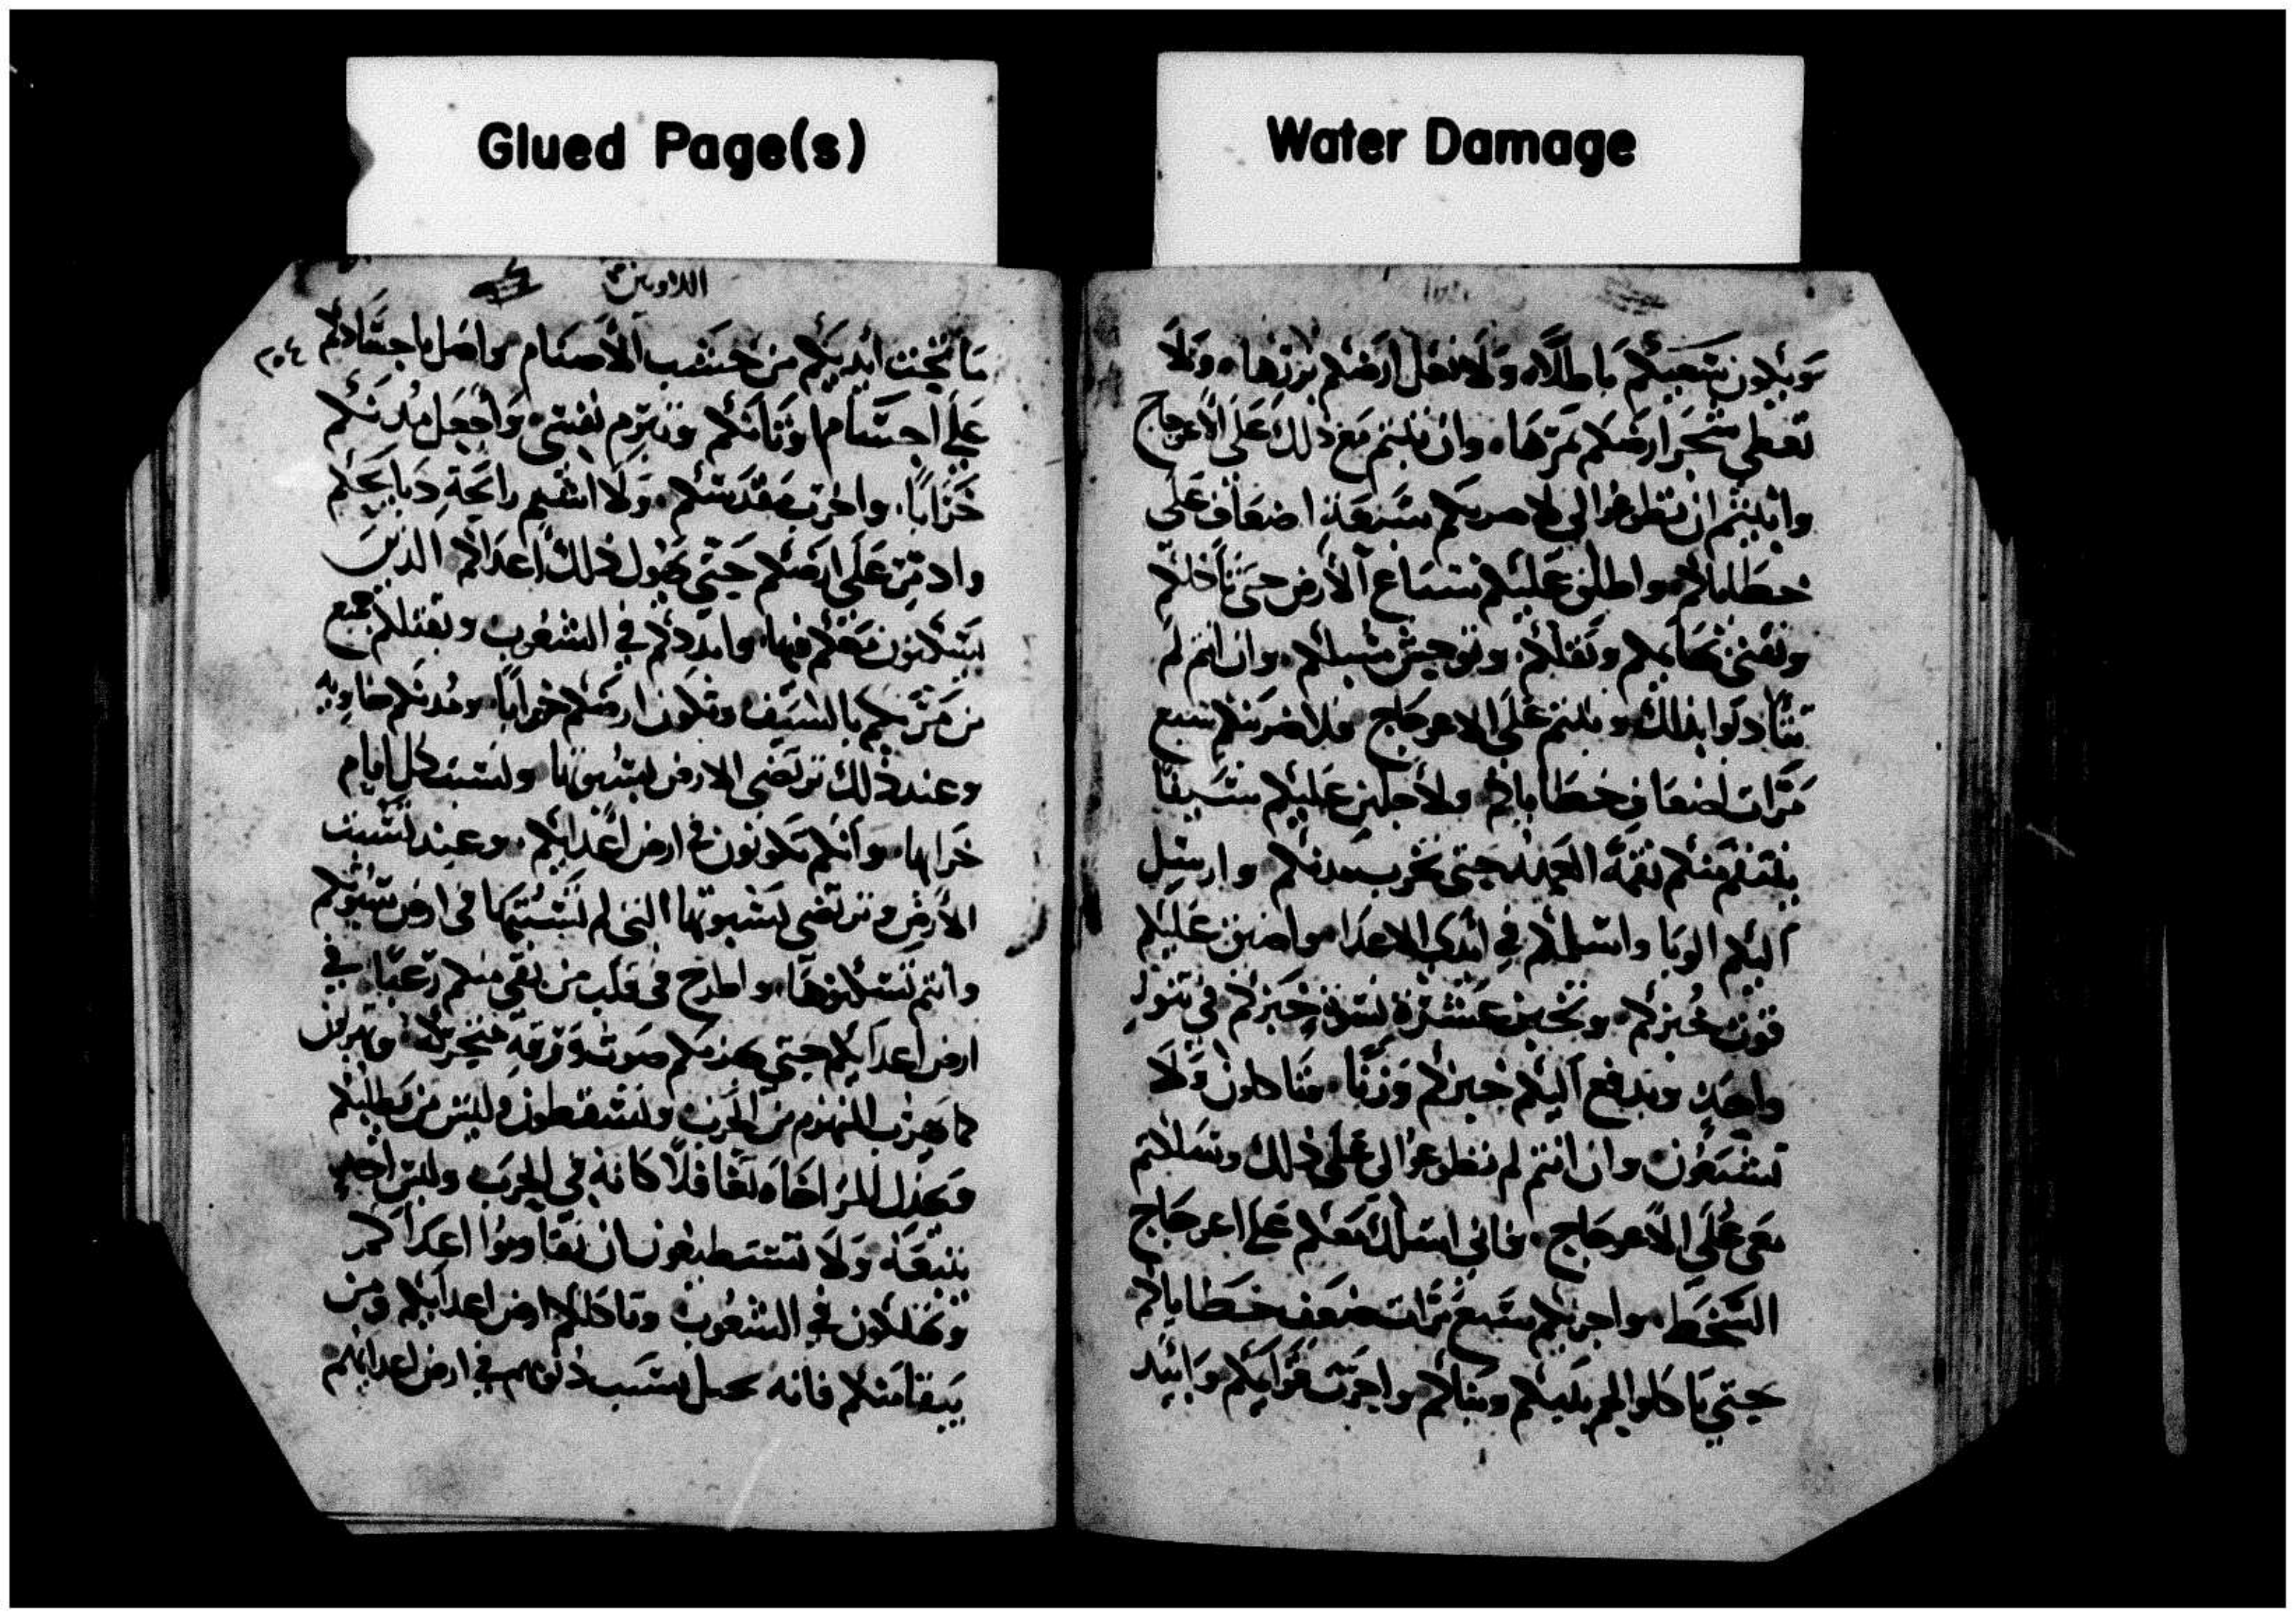 Glued Page(s)
Water Damage
ويكون تعبكم باطلا ولا تغل ارضكم بزرها ولا
تعطي شجر ارضكم ثمرتها وان ثبتم مع ذلك على الاعوجاج
وابيتم ان تطوعوا لي لاضربكم سبعة اضعاف على
خطاياكم واطلق عليكم سباع الارض حتى تاكلكم
وتفني بهايمكم وتقلكم وتوحش سبلكم وان انتم لم
تتادبوا بذلك وثبتم على الاعوجاج فلاضربنكم سبع
مرات اضعاف خطاياكم ولاجلبن عليكم سيفا
ينتقم منكم نقمة العهد حتى تخرب مدنكم وارسل
اليكم الوبا واسلمكم في ايدي الاعدا واضيق عليكم
قوت خبزكم وتخبز عشرة نسوة خبزكم في تنور
واحد وتدفع اليكم خبزكم وزنا وتاكلون ولا
تشبعون وان انتم لم تطوعوا لي على ذلك وسلكتم
معي على الاعوجاج فاني اسلك معكم على اعوجاج
السخط واجزيكم سبع مرات ضعف خطاياكم
حتى تاكلوا لحم بنيكم وبناتكم واخرب قراكم وابيد
اللاويين
٢٠٤
ما نحتت ايديكم من خشب الاصنام واصل باجسادكم
على اجسام اوثانكم وتبرم نفسي واجعل مدنكم
خرابا واخرب مقدسكم ولا اشتم رايحة ذبايحكم
وادمر على ارضكم حتى يهول ذلك اعداكم الذين
يسكنون معكم فيها وابددكم في الشعوب ويقتلكم جميع
من مر بكم بالسيف وتكون ارضكم خرابا ومدنكم خاويه
وعند ذلك ترتضي الارض بسبوتها ولتسبت كل ايام
خرابها وانتم تكونون في ارض اعدايكم وعند تسبت
الارض وترتضي بسبوتها التي لم تسبتها في ارض سبوتكم
وانتم تسكنوها واطرح في قلب من بقي منكم رعبا في
ارض اعدايكم حتى يهزمكم صوت ورقة وتهربون
كما يهرب المنهزم من الحرب وتسقطون وليس من يطلبكم
ويخذل المر اخاه كانه في الحرب وليس احد
يتبعه ولا تستطيعون ان تقاوموا اعداكم
وتهلكون في الشعوب وتاكلكم ارض اعدايكم ومن
يبقا منكم فانه بسبب ذنوبهم في ارض اعدايهم